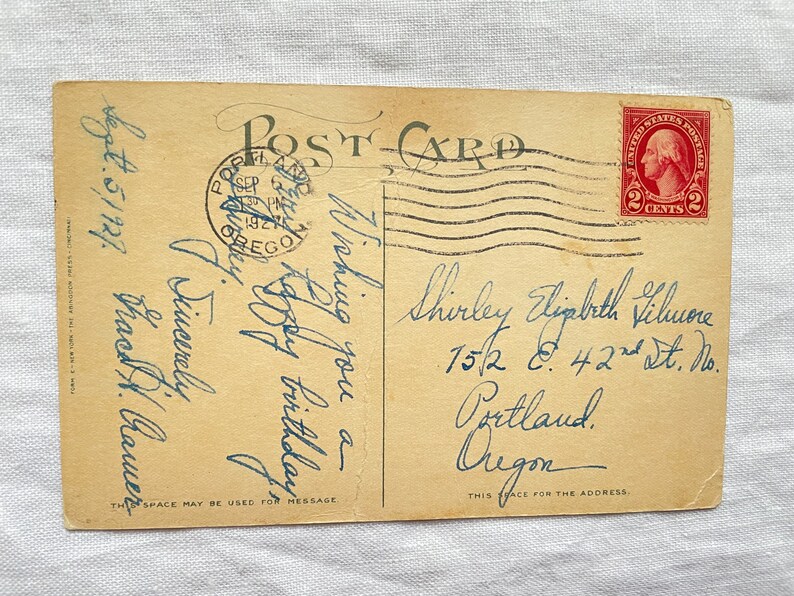 POST CARD
PORTLAND
SEP 6
1 30 PM
1927
OREGON
UNITED STATES POSTAGE
2 CENTS 2
Sept. 5/27.
Dear
Shirley
Wishing you a
happy birthday,
Sincerely
Grace H. Cramer
Shirley Elizabeth Gilmore
752 E. 42nd St. No.
Portland,
Oregon
THIS SPACE MAY BE USED FOR MESSAGE.
THIS SPACE FOR THE ADDRESS.
FORM E - NEW YORK - THE ABINGDON PRESS - CINCINNATI